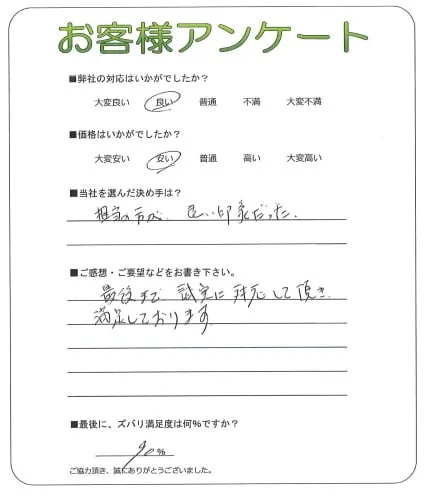 お客様アンケート
■弊社の対応はいかがでしたか?
大変良い 良い 普通 不満 大変不満
■価格はいかがでしたか?
大変安い 安い 普通 高い 大変高い
■当社を選んだ決め手は?
担当の方が、良い印象だった、
■ご感想・ご要望などをお書き下さい。
最後まで 誠実に 対応して頂き、
満足しております
■最後に、ズバリ満足度は何%ですか?
90%
ご協力頂き、誠にありがとうございました。